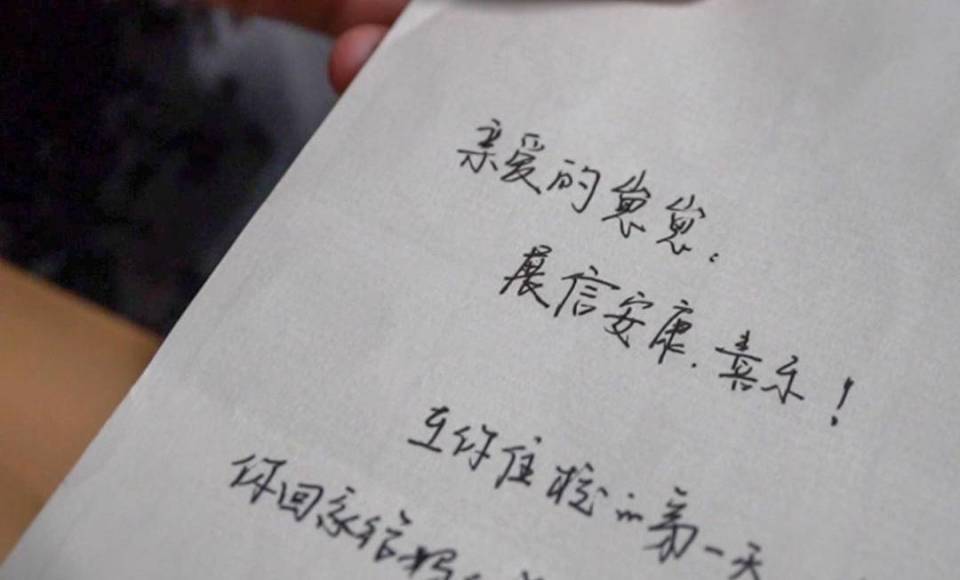 亲爱的崽崽：
展信安康.喜乐！
在你住校的第一天
你回家给妈